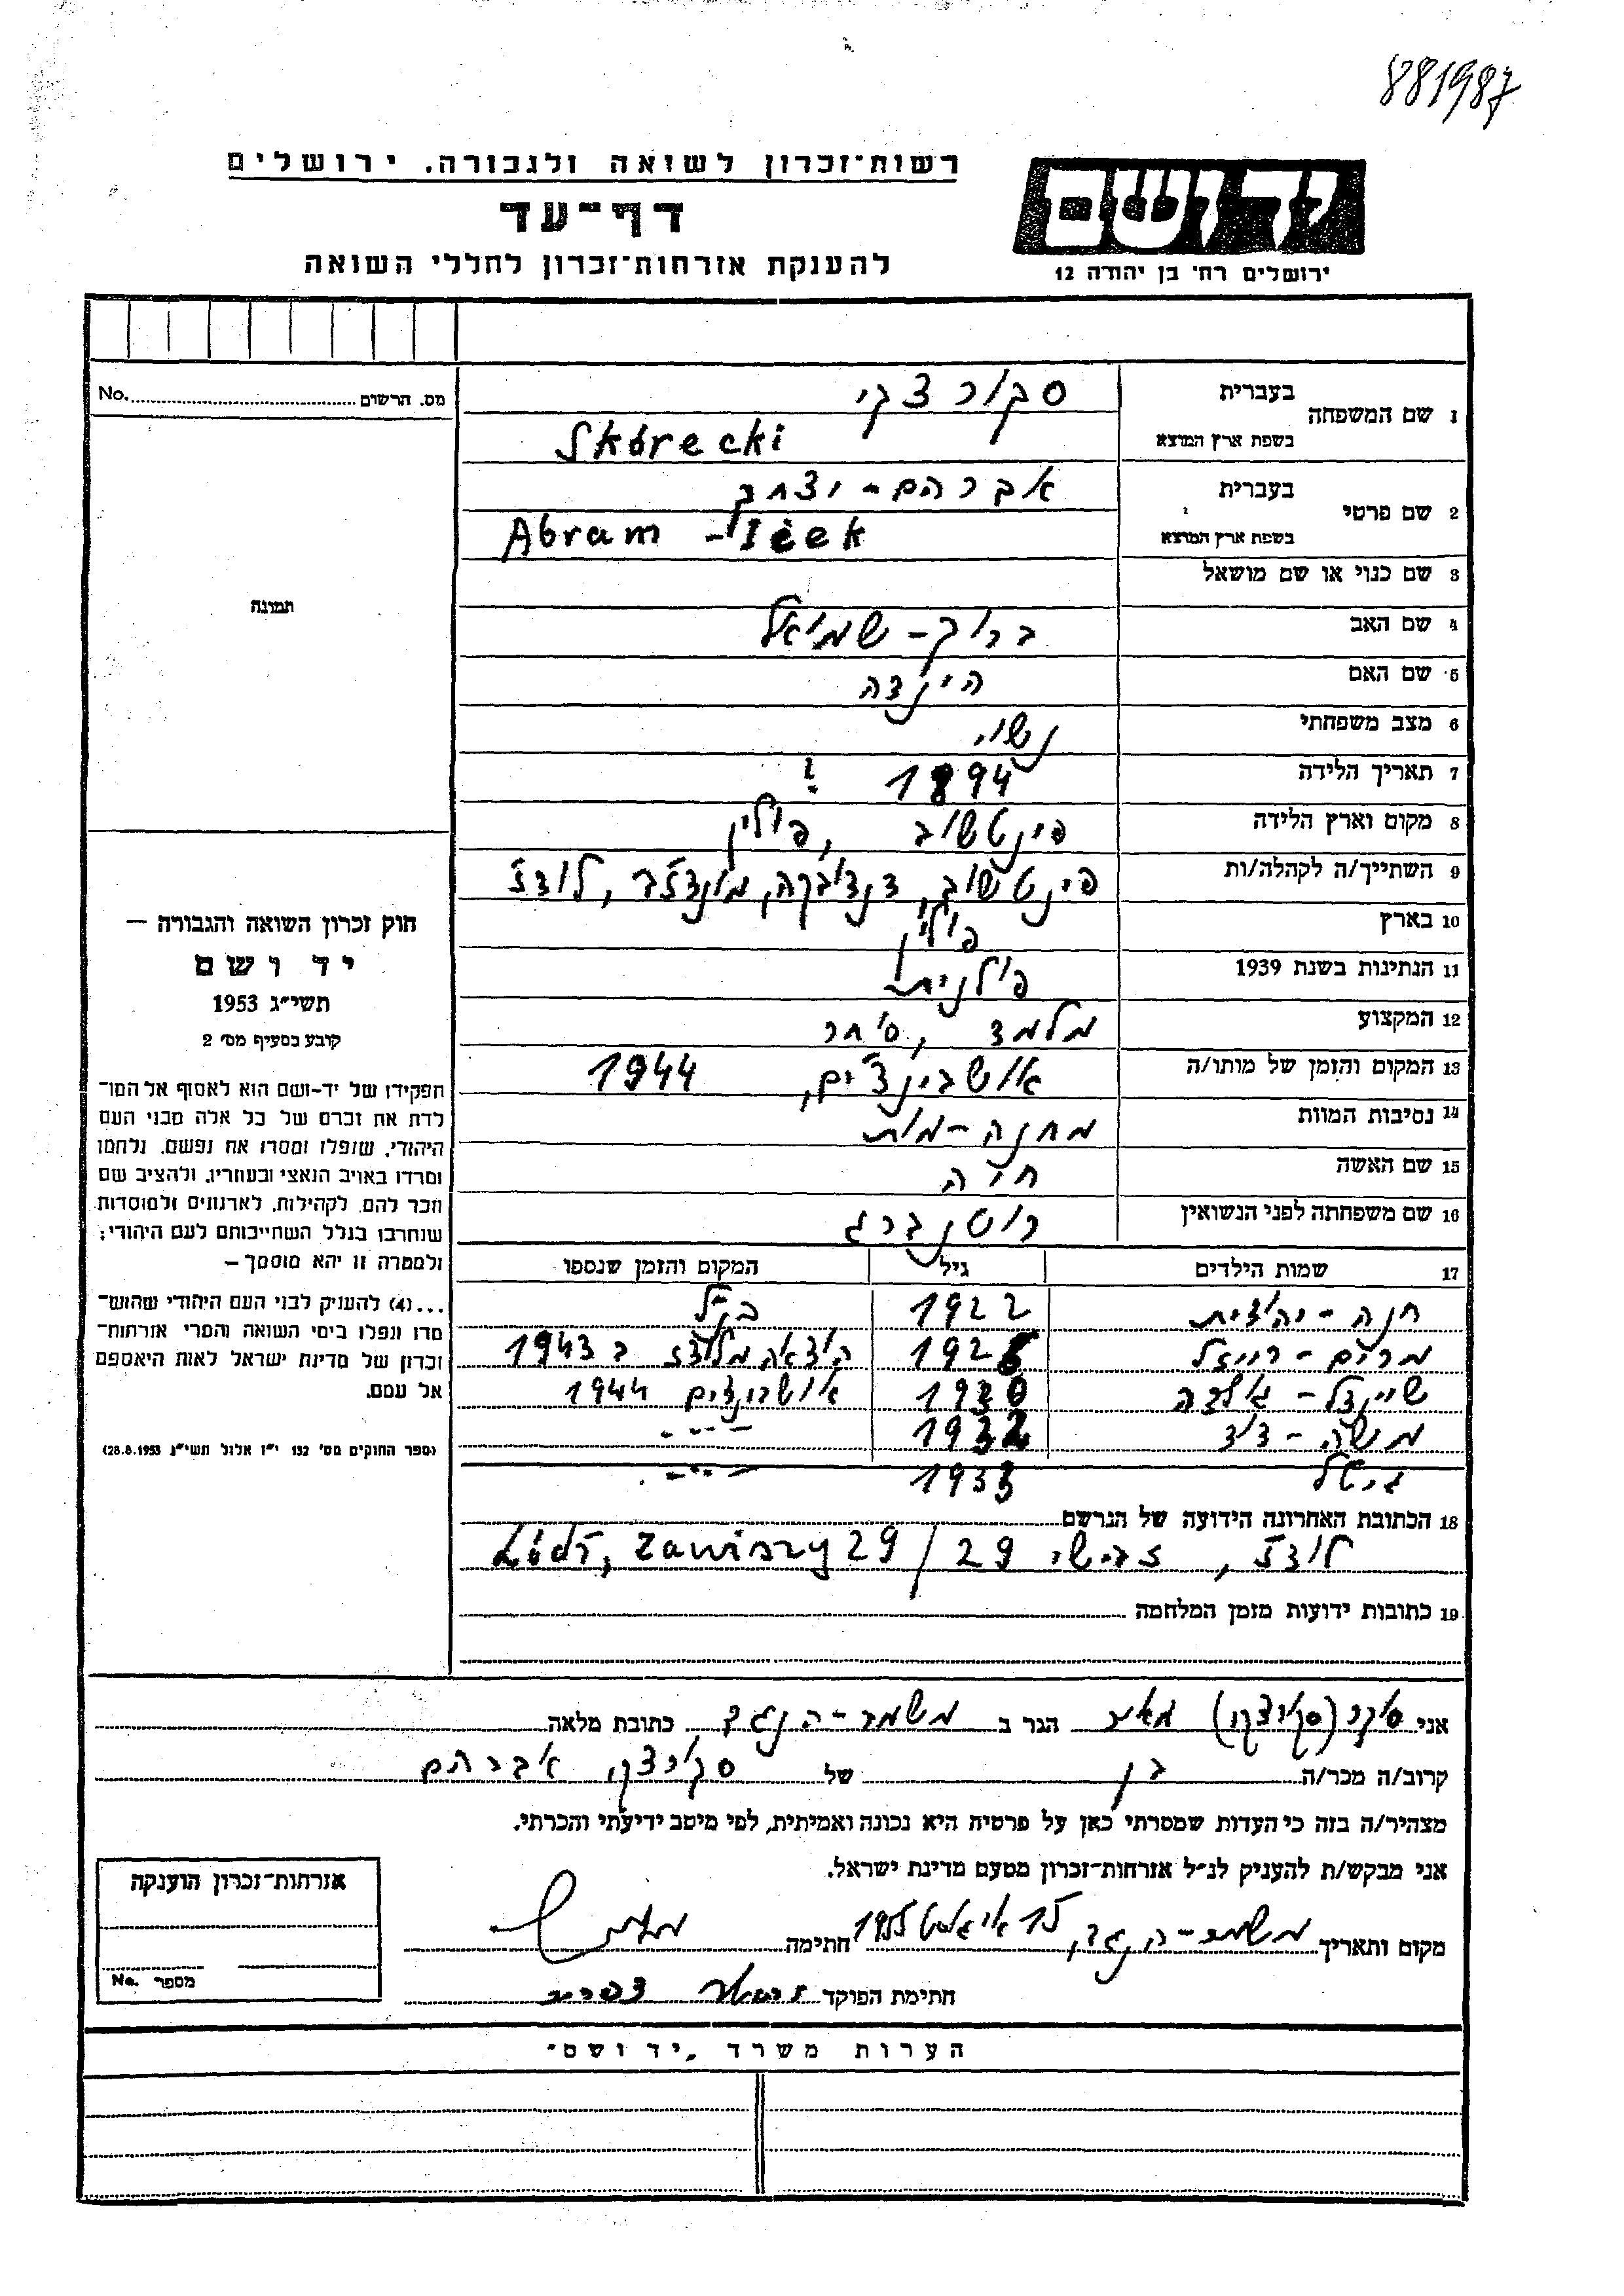 881987
יד ושם
ירושלים רח' בן יהודה 12
רשות-זכרון לשואה ולגבורה, ירושלים
דף-עד
להענקת אזרחות-זכרון לחללי השואה
מס. הרשום No.
תמונה
חוק זכרון השואה והגבורה –
יד ושם
תשי"ג 1953
קובע בסעיף מס' 2
תפקידו של יד-ושם הוא לאסוף אל המו-
לדת את זכרם של כל אלה מבני העם
היהודי, שנפלו ומסרו את נפשם, נלחמו
ומרדו באויב הנאצי ובעוזריו, ולהציב שם
וזכר להם, לקהילות, לארגונים ולמוסדות
שנחרבו בגלל השתייכותם לעם היהודי;
ולמטרה זו יהא מוסמך –
...(4) להעניק לבני העם היהודי שהוש-
מדו ונפלו בימי השואה והמרי אזרחות-
זכרון של מדינת ישראל לאות היאספם
אל עמם.
(ספר החוקים מס' 132 י"ז אלול תשי"ג 28.8.1953)
1 שם המשפחה בעברית סקורצקי
בשפת ארץ המוצא Skórecki
2 שם פרטי בעברית אברהם-יצחק
בשפת ארץ המוצא Abram - Icek
3 שם כנוי או שם מושאל
4 שם האב ברוך-שמואל
5 שם האם הינדה
6 מצב משפחתי נשוי
7 תאריך הלידה 1894 ?
8 מקום וארץ הלידה פינטשוב, פולין
9 השתייך/ה לקהלה/ות פינטשוב, לודז
10 בארץ פולין
11 הנתינות בשנת 1939 פולנית
12 המקצוע מלמד, סוחר
13 המקום והזמן של מותו/ה אושבינצ'ים, 1944
14 נסיבות המוות מחנה-מות
15 שם האשה חיה
16 שם משפחתה לפני הנשואין רוטנברג
17 שמות הילדים גיל המקום והזמן שנספו
חנה-יהודית 1922
מרים-רייזל 1928 הוצאה מלודז ב 1943
שיינדל- 1930 אושבינצים 1944
משה-דוד 1932 -"-
1933 -"-
18 הכתובת האחרונה הידועה של הנרשם
לודז, זבישי 29 / Łódź, Zawiszy 29
19 כתובות ידועות מזמן המלחמה
אני (סקורצקי) מאיר הגר ב משמר-הנגב כתובת מלאה
קרוב/ה מכר/ה בן של סקורצקי אברהם
מצהיר/ה בזה כי העדות שמסרתי כאן על פרטיה היא נכונה ואמיתית, לפי מיטב ידיעתי והכרתי.
אני מבקש/ת להעניק לנ"ל אזרחות-זכרון מטעם מדינת ישראל.
מקום ותאריך משמר-הנגב, 15 אוגוסט 1955 חתימה
חתימת הפוקד
אזרחות-זכרון הוענקה
מספר No.
הערות משרד "יד ושם"